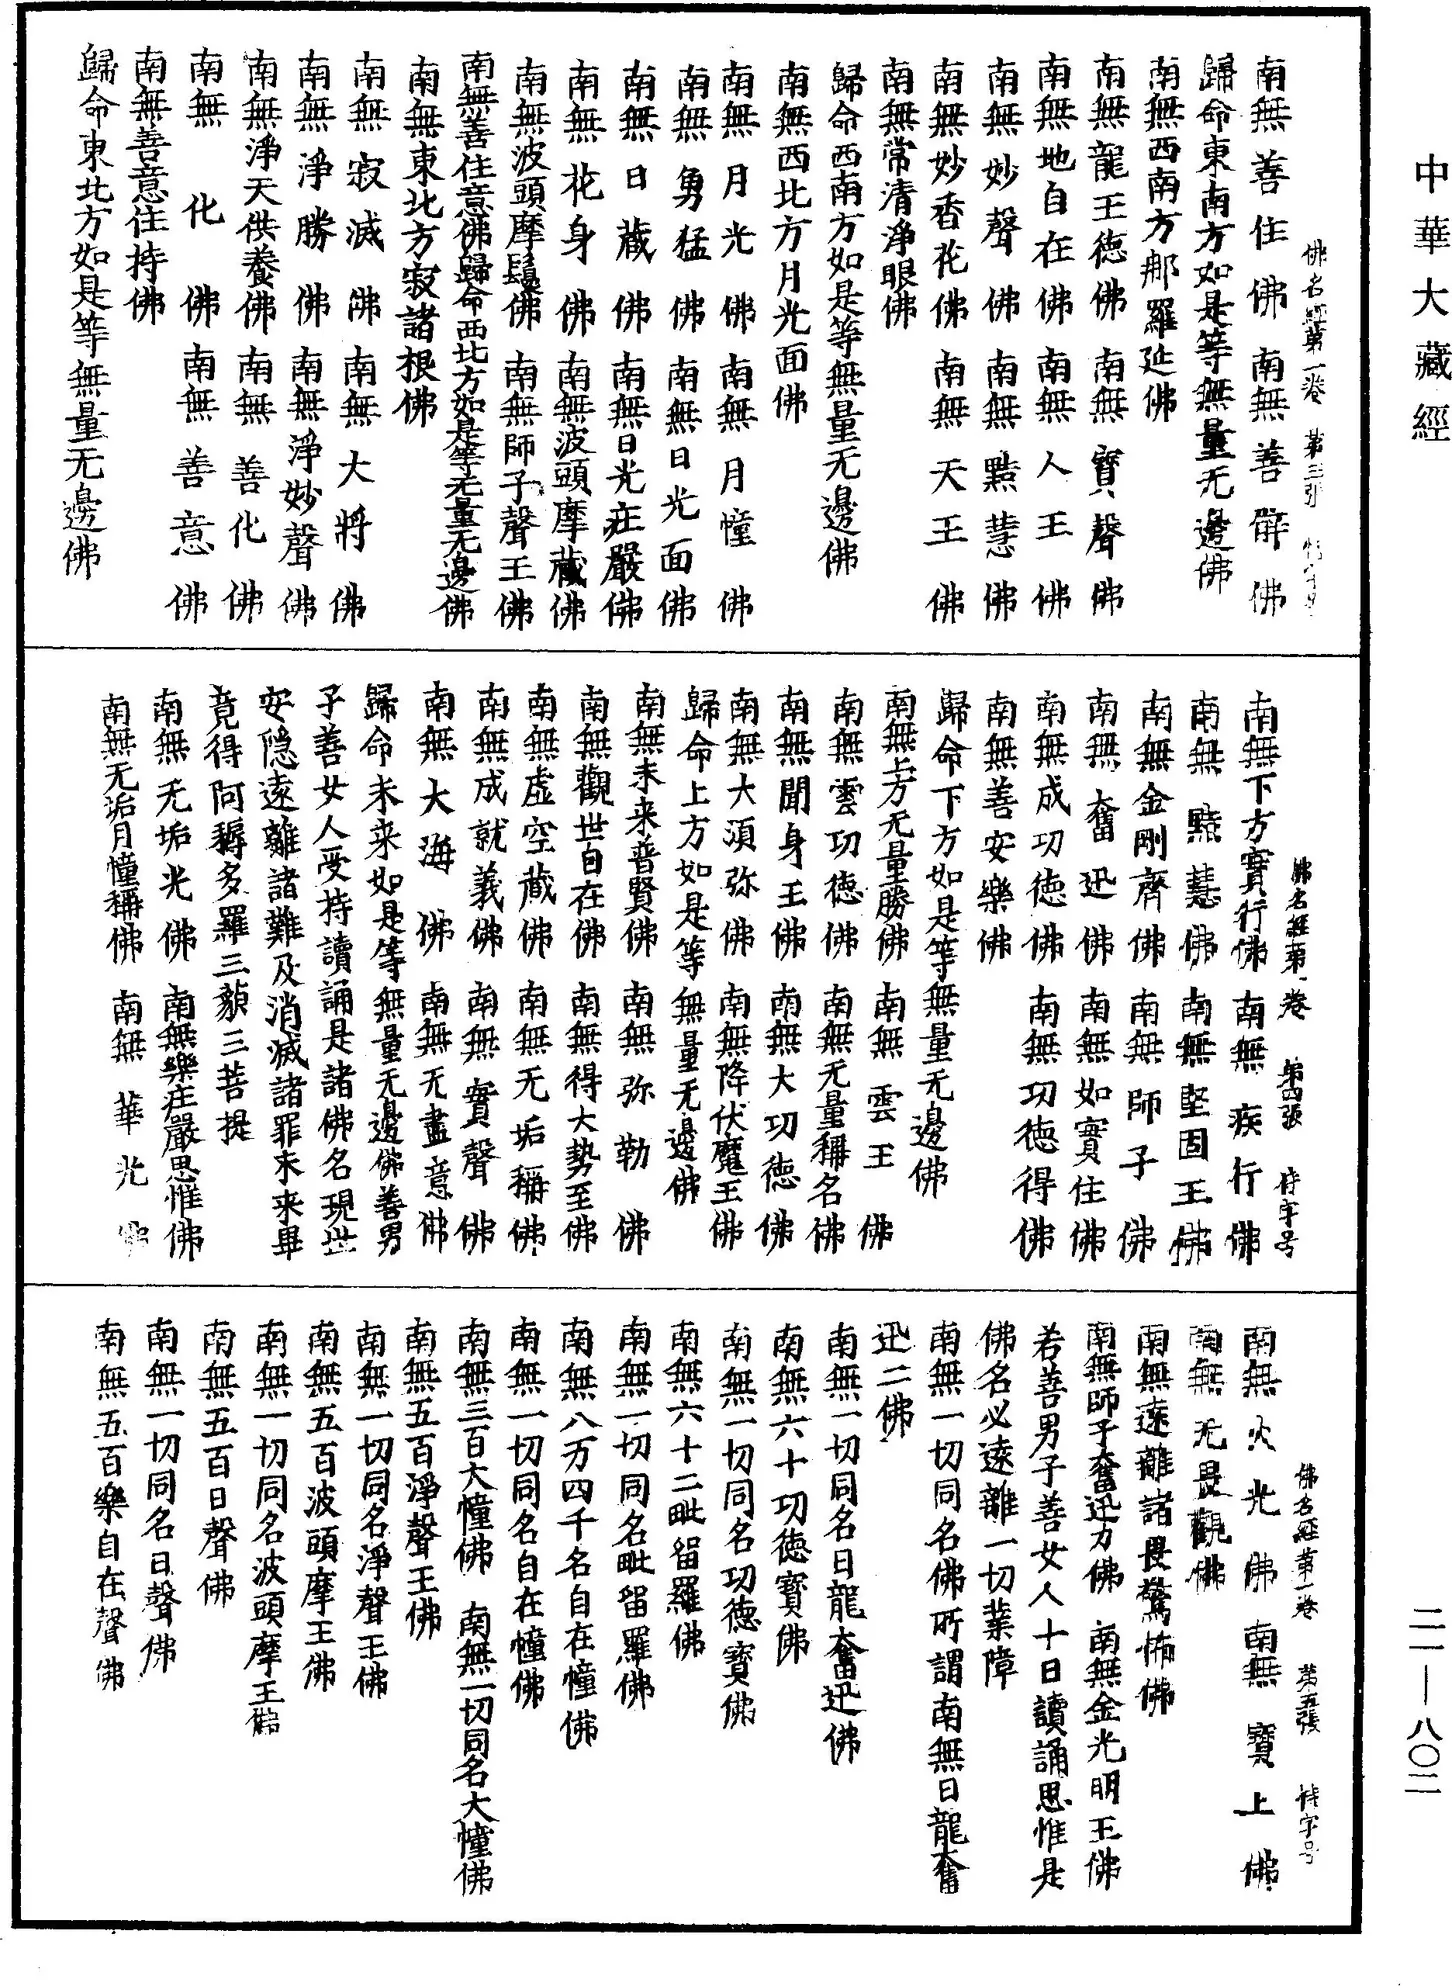 中華大藏經
二一—八〇二
佛名經第一卷　第三張
南無善住佛　南無善臂佛
歸命東南方如是等無量无邊佛
南無西南方那羅延佛
南無龍王德佛　南無寶聲佛
南無地自在佛　南無人王佛
南無妙聲佛　南無黠慧佛
南無妙香花佛　南無天王佛
南無常清淨眼佛
歸命西南方如是等無量无邊佛
南無西北方月光面佛
南無月光佛　南無月幢佛
南無勇猛佛　南無日光面佛
南無日藏佛　南無日光莊嚴佛
南無花身佛　南無波頭摩藏佛
南無波頭摩鬚佛　南無師子聲王佛
南無善住意佛歸命西北方如是等无量无邊佛
南無東北方寂諸根佛
南無寂滅佛　南無大將佛
南無淨勝佛　南無淨妙聲佛
南無淨天供養佛　南無善化佛
南無化佛　南無善意佛
南無善意住持佛
歸命東北方如是等無量无邊佛
佛名經第一卷　第四張　侍字号
南無下方實行佛　南無疾行佛
南無黠慧佛　南無堅固王佛
南無金剛齊佛　南無師子佛
南無奮迅佛　南無如實住佛
南無成功德佛　南無功德得佛
南無善安樂佛
歸命下方如是等無量无邊佛
南無上方无量勝佛　南無雲王佛
南無雲功德佛　南無无量稱名佛
南無聞身王佛　南無大功德佛
南無大須弥佛　南無降伏魔王佛
歸命上方如是等無量无邊佛
南無未来普賢佛　南無弥勒佛
南無觀世自在佛　南無得大勢至佛
南無虛空藏佛　南無无垢稱佛
南無成就義佛　南無寶聲佛
南無大海佛　南無无盡意佛
歸命未来如是等無量无邊佛善男
子善女人受持讀誦是諸佛名現世
安隱遠離諸難及消滅諸罪未来畢
竟得阿耨多羅三藐三菩提
南無无垢光佛　南無樂莊嚴思惟佛
南無无垢月幢稱佛　南無華光佛
佛名經第一卷　第五張　侍字号
南無火光佛　南無寶上佛
南無无畏觀佛
南無遠離諸畏驚怖佛
南無師子奮迅力佛　南無金光明王佛
若善男子善女人十日讀誦思惟是
佛名必遠離一切業障
南無一切同名佛所謂南無日龍奮
迅二佛
南無一切同名日龍奮迅佛
南無六十功德寶佛
南無一切同名功德寶佛
南無六十二毗留羅佛
南無一切同名毗留羅佛
南無八万四千名自在幢佛
南無一切同名自在幢佛
南無三百大幢佛　南無一切同名大幢佛
南無五百淨聲王佛
南無一切同名淨聲王佛
南無五百波頭摩王佛
南無一切同名波頭摩王佛
南無五百日聲佛
南無一切同名日聲佛
南無五百樂自在聲佛